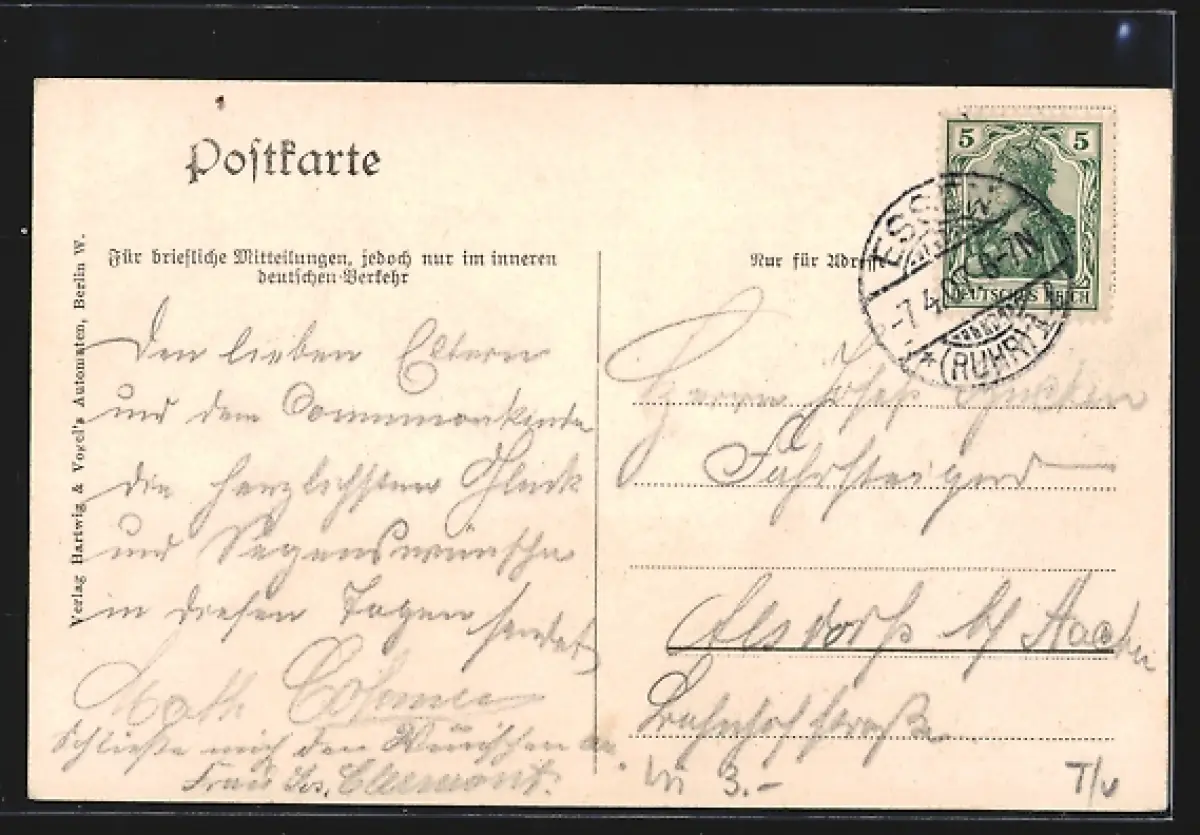 Postkarte
Für briefliche Mitteilungen, jedoch nur im inneren
deutschen Verkehr
Verlag Hartwig & Vogel's Automaten, Berlin W.
Den lieben Eltern
und dem Communionkinde
die herzlichsten Glück
und Segenswünsche
in diesen Tagen sendet
Math
Schließe mich den Wünschen an
Frau Jos. Clermont.
5 5
DEUTSCHES REICH
ESSEN
-7.4.07. 6-7N
* (RUHR) 1
Nur für Adresse
Herrn Josef
Fahrsteiger
Alsdorf b/ Aachen
Bahnhofstraße
3.-
T/v